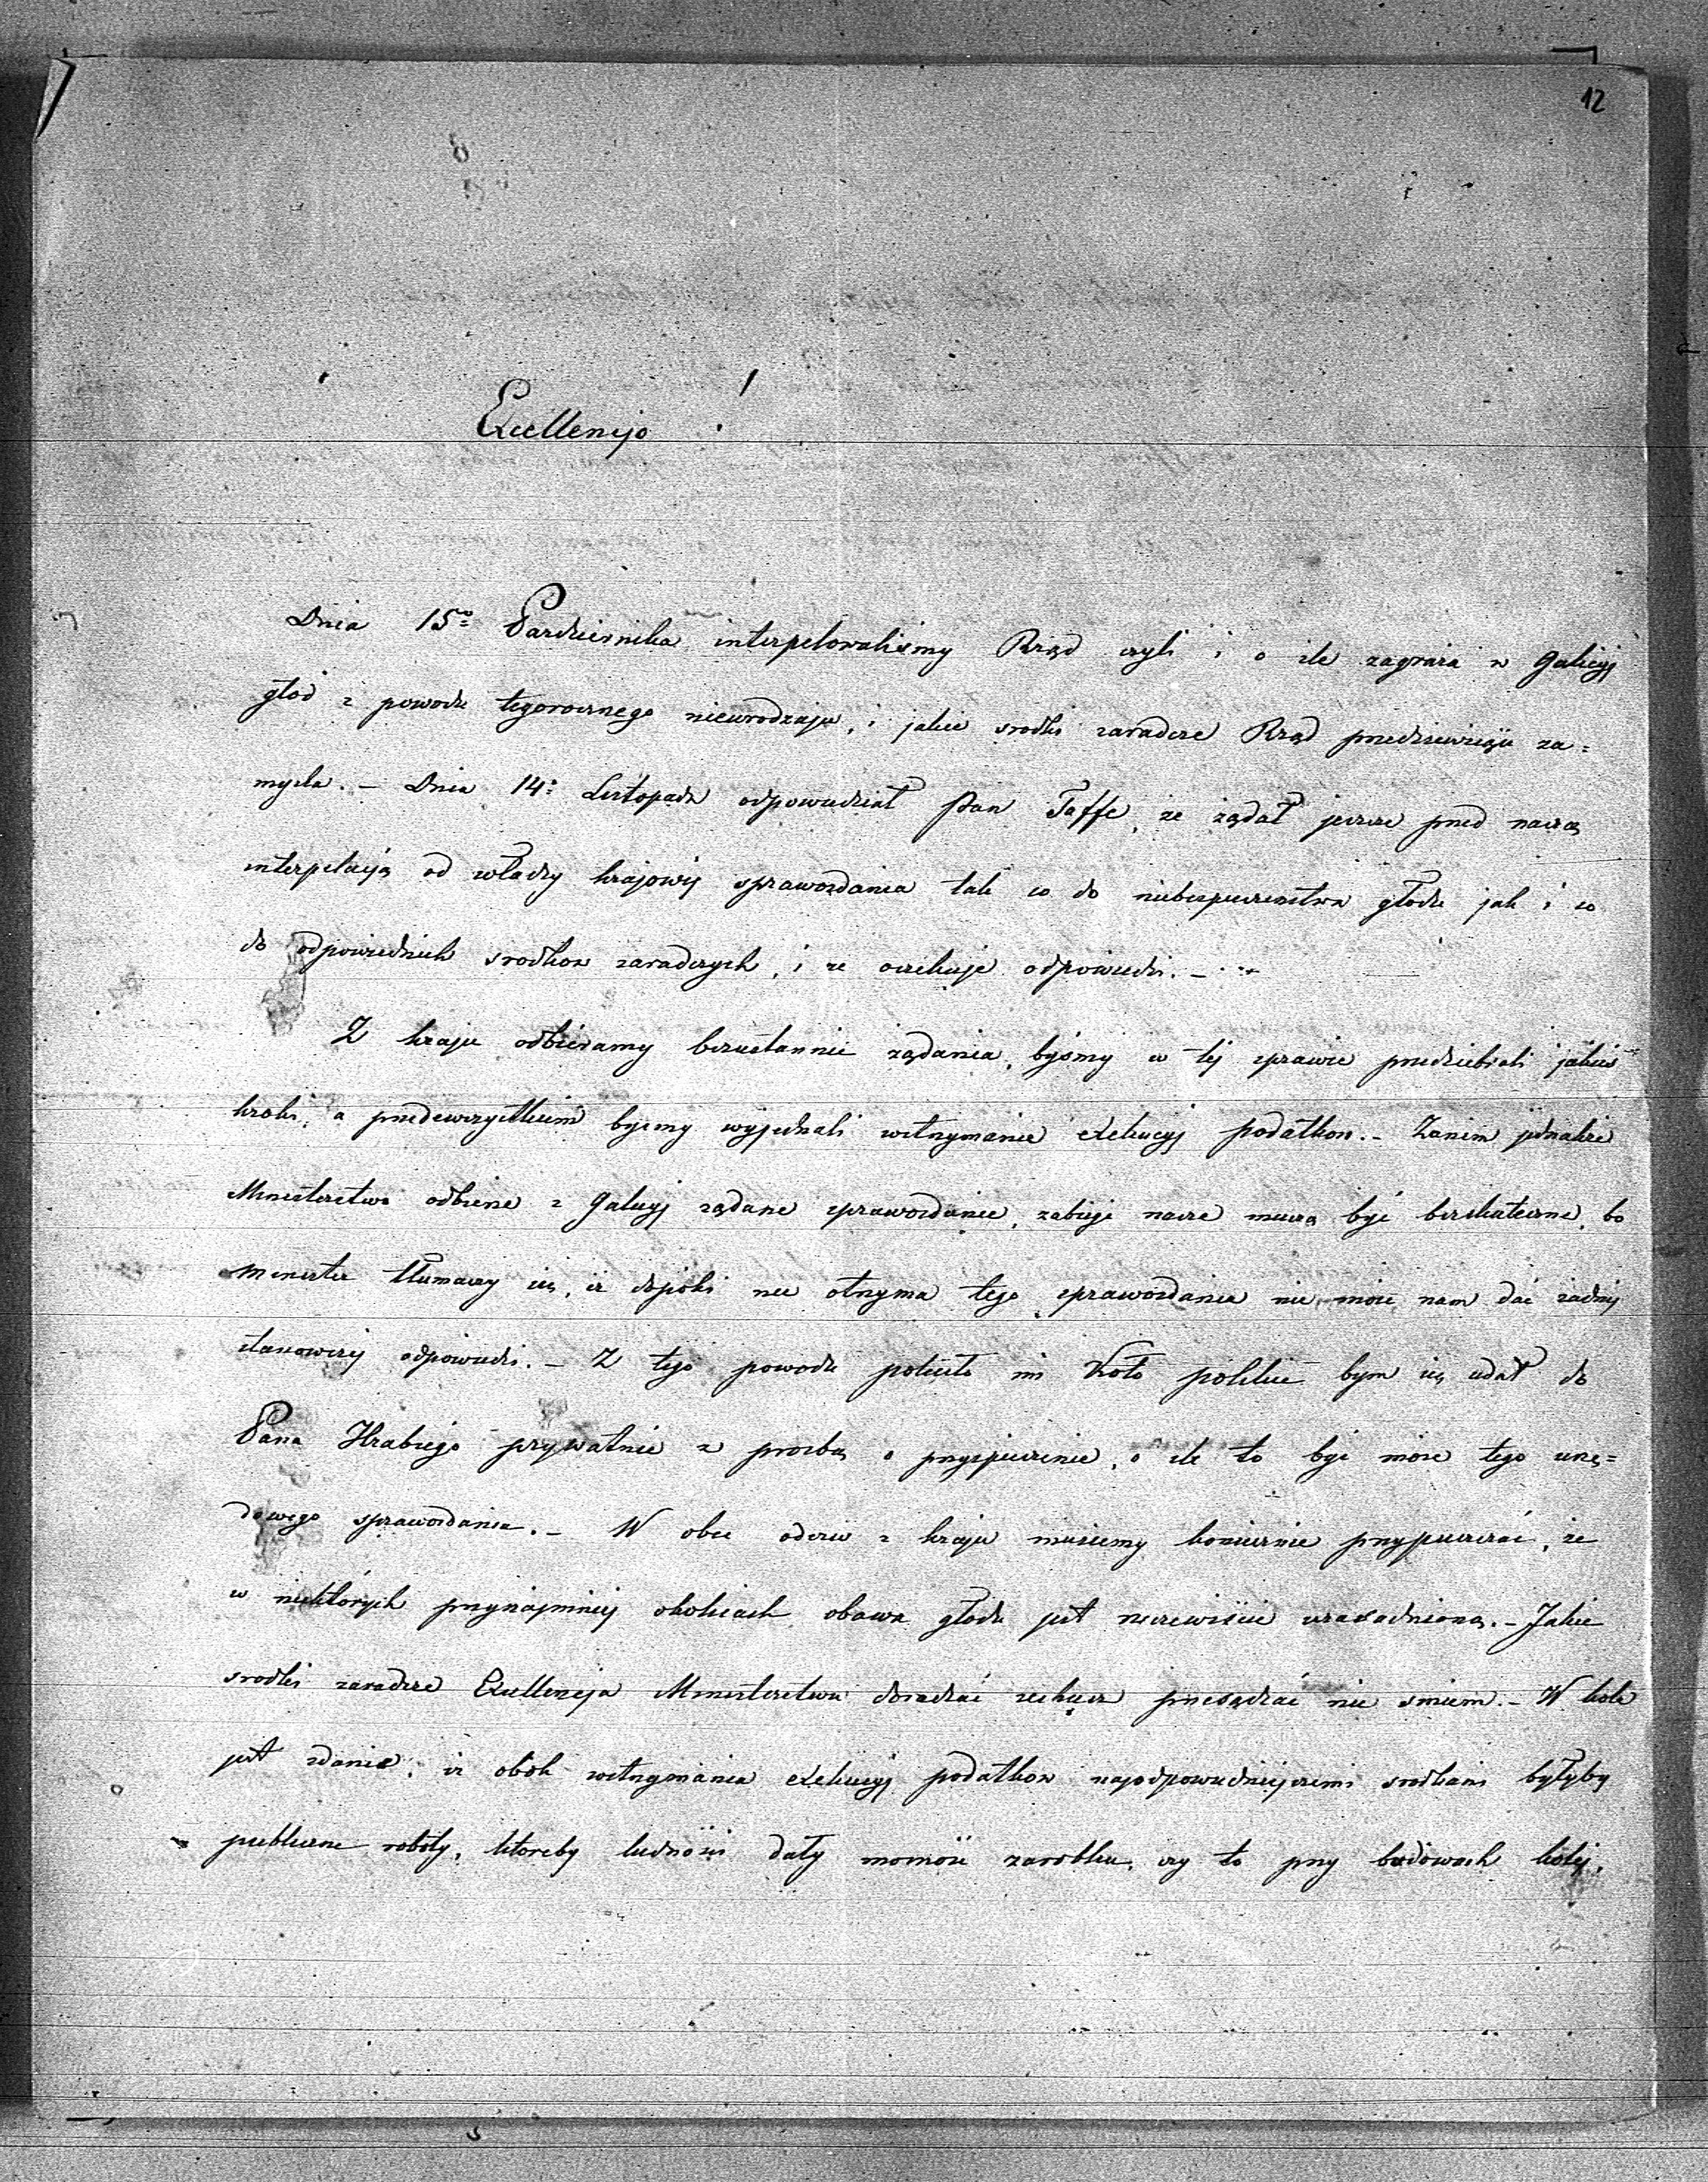 12
Excellencyo !
Dnia 15º Pazdziernika interpelowalismy Rząd czyli i o ile zagraża w Galicyj
głod z powodu tegorocznego nieurodzaju, i jakie srodki zaradcze Rząd przedsięwziąść za=
mysla. – Dnia 14º Listopada odpowiedział Pan Taffe, ze żądał jeszcze przed naszą
interpelacyą od władzy krajowej sprawozdania tak co do niebezpieczenstwa głodu jak i co
do odpowiednich srodkow zaradczych, i ze oczekuje odpowiedzi. –
Z kraju odbieramy bezustannie żądania, byśmy w tej sprawie przedsiebrali jakieś
kroki, a przedewszystkiem bysmy wyjednali wstrzymanie exekucyj podatkow. – Zanim jednakże
Ministerstwo odbierze z Galicyj żądane sprawozdanie, zabiegi nasze muszą być bezskuteczne, bo
Minister tłumaczy się, iz dopoki nie otrzyma tego sprawozdania nie może nam dać żadnej
stanowczej odpowiedzi. – Z tego powodu poleciło mi Koło polskie bym się udał do
Pana Hrabiego prywatnie z prozbą o przyspieszenie, o ile to być może tego urzę=
dowego sprawozdania. – W obec odezw z kraju musiemy koniecznie przypuszczać, że
w niektórych przynajmniej okolicach obawa głodu jest rzeczewiście uzasadnioną. – Jakie
srodki zaradcze Excellencja Ministerstwu doradzać zechcesz przesądzać nie smiem. – W kole
jest zdanie, iz obok wstrzymania exekucyj podatkow najodpowiedniejszemi srodkami byłyby
publiczne roboty, ktoreby ludności dały możność zarobku, czy to przy budowach kolej,